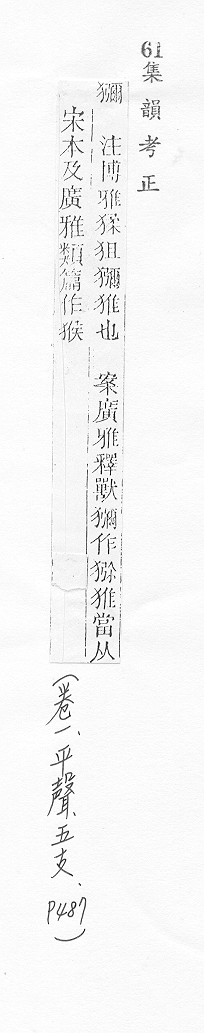 61集韻考正
獼 注博雅猱狙獼猚也 案廣雅釋獸獼作猕猚當从
宋本及廣雅類篇作猴
(卷一、平聲、五支、P487)